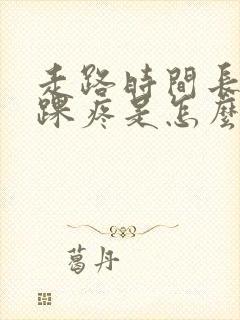 走路時間長
踝疼是怎麼
葛丹